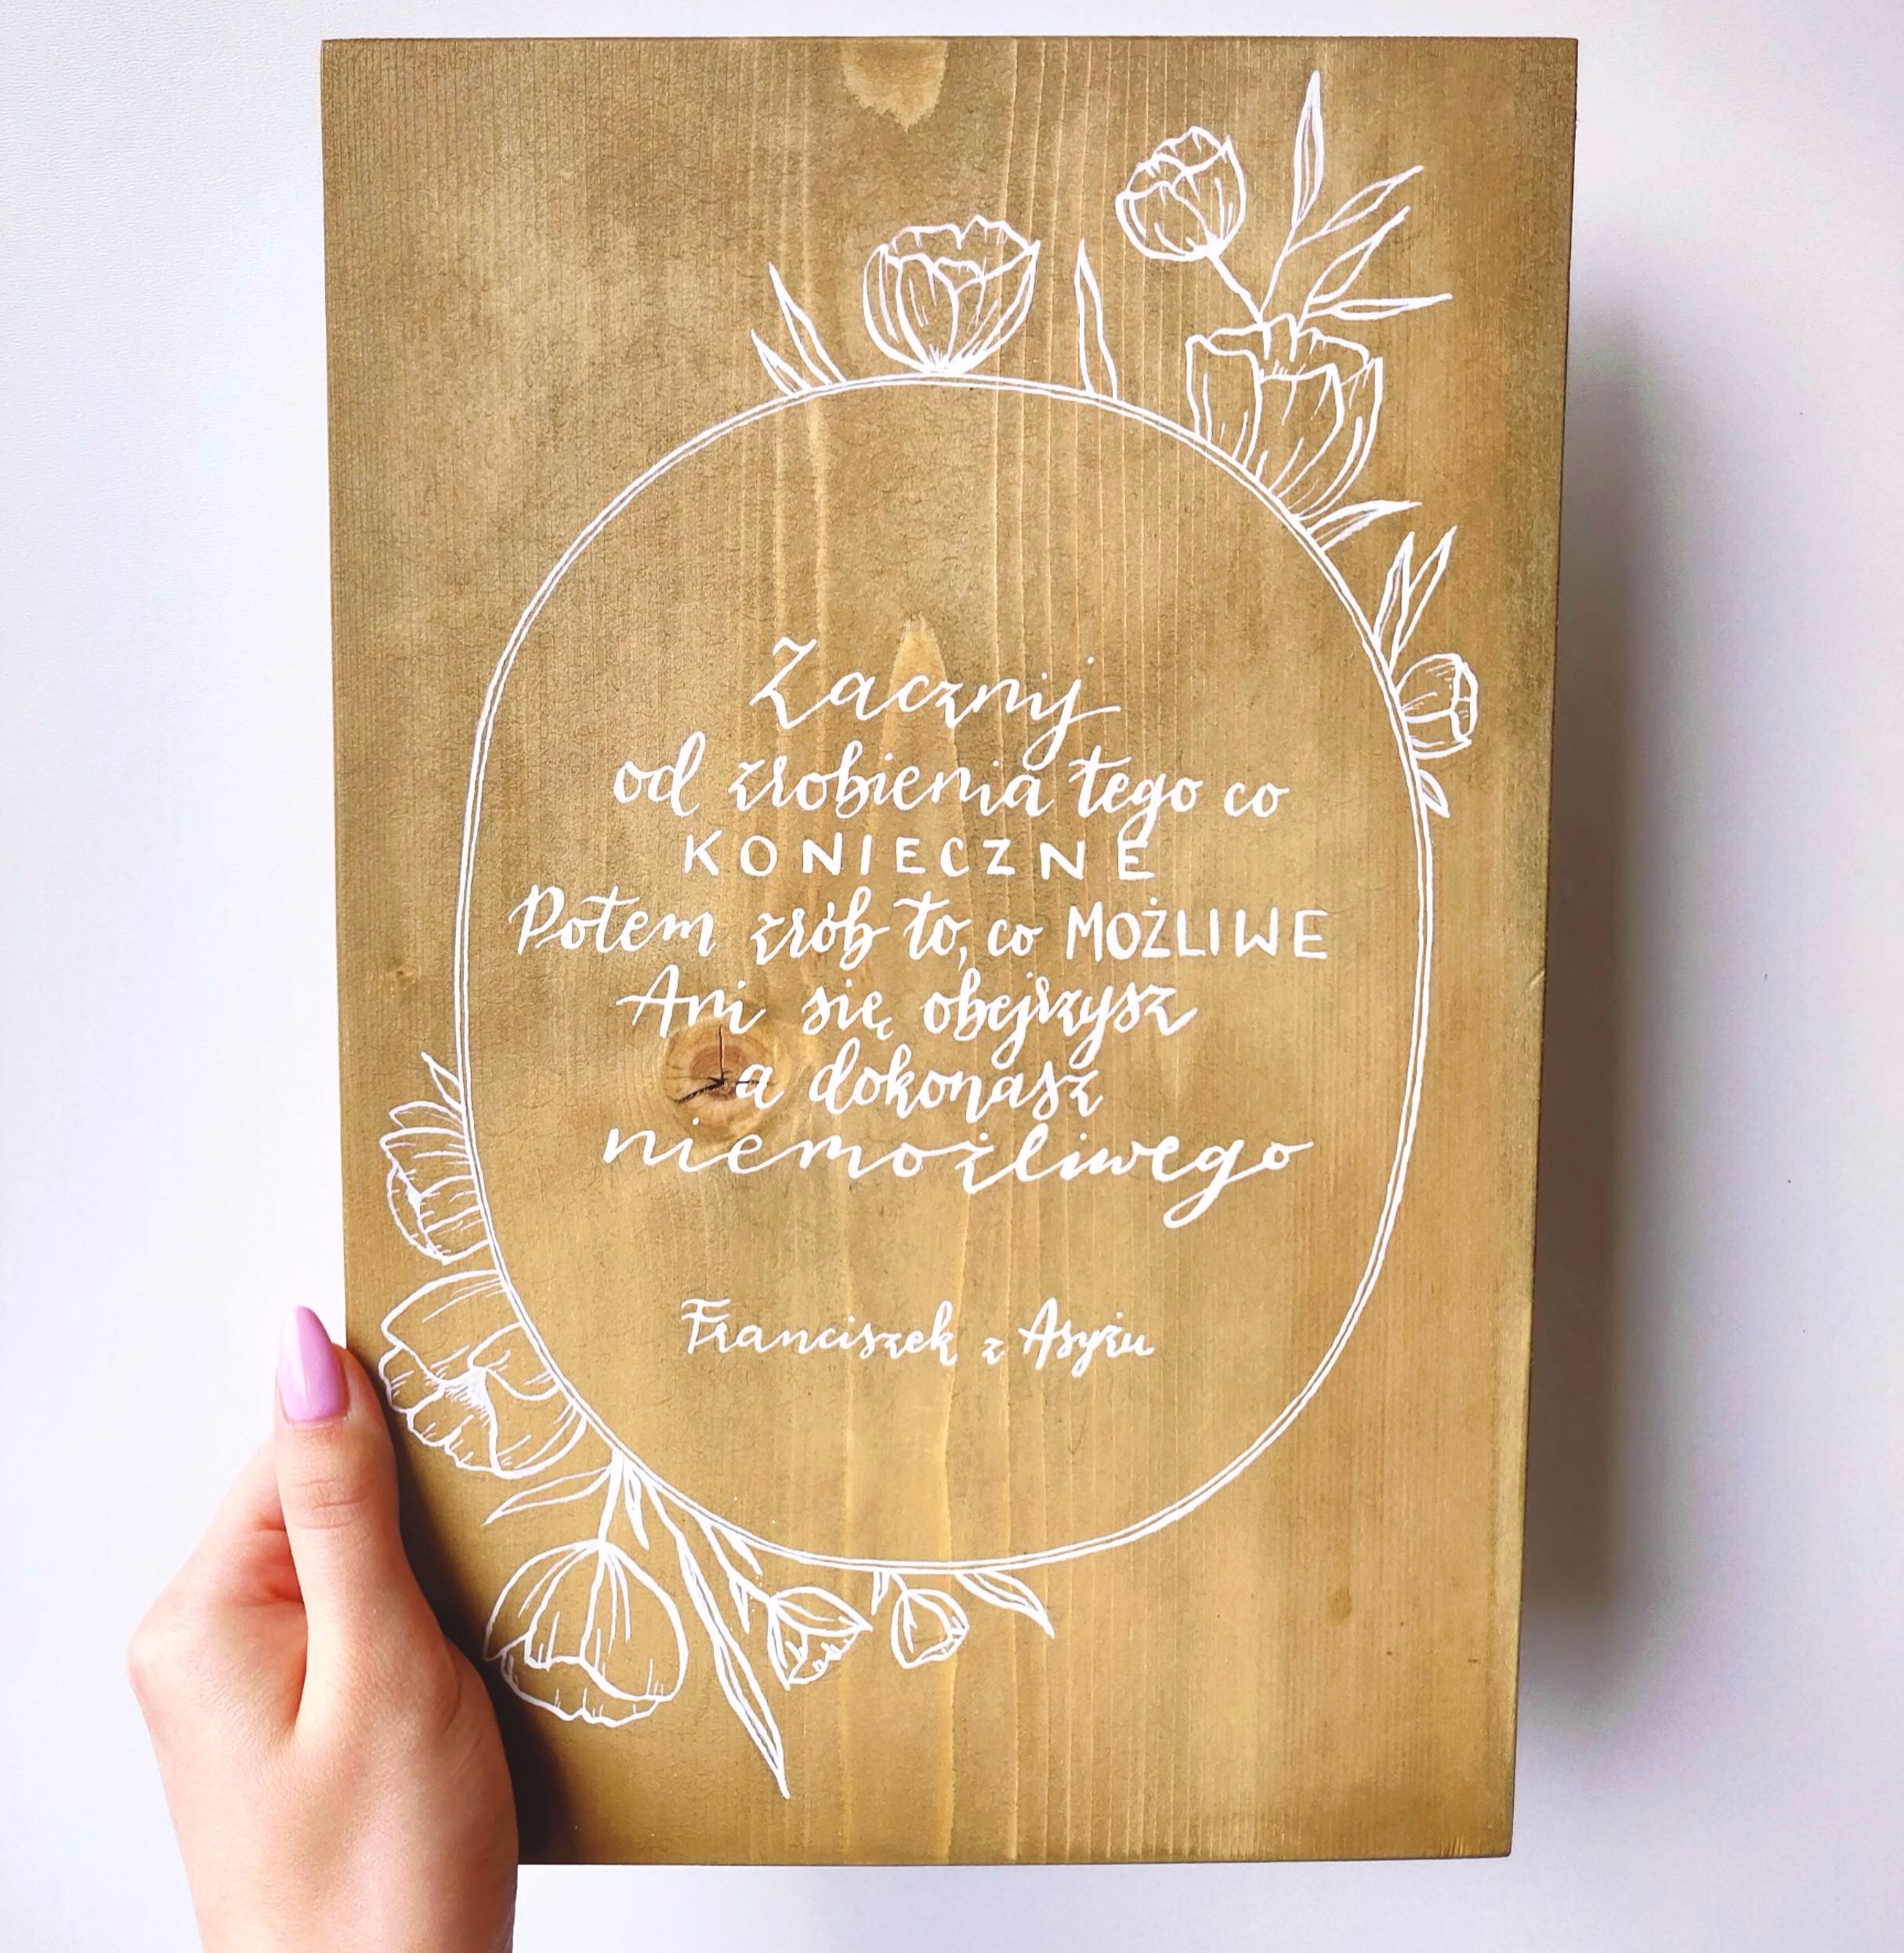 Zacznij
od zrobienia tego co
KONIECZNE
Potem zrób to, co MOŻLIWE
Ani się obejrzysz
a dokonasz
niemożliwego
Franciszek z Asyżu